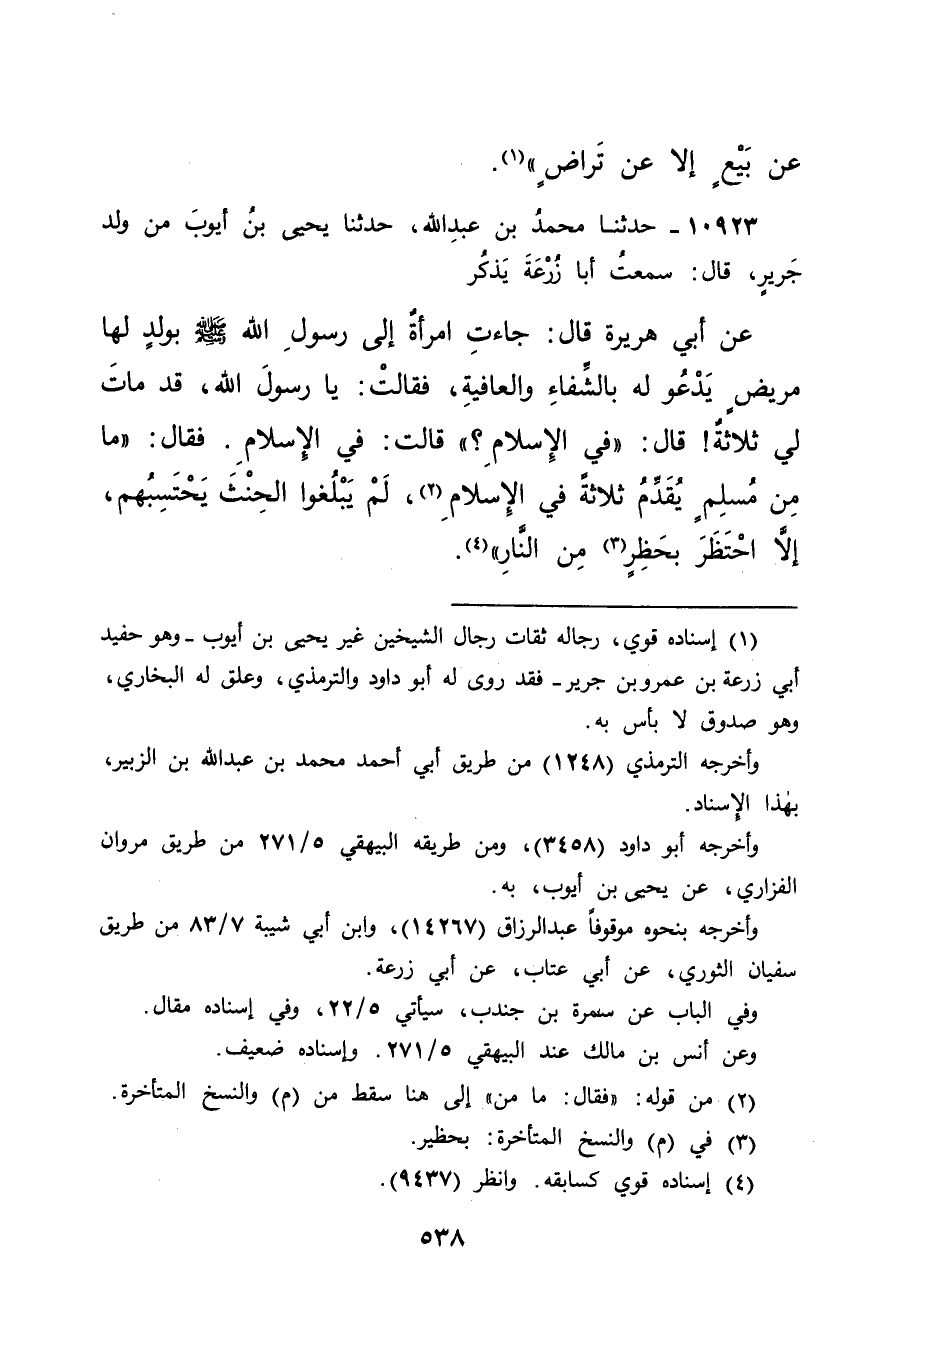 عن بَيْعٍ إلا عن تَراضٍ»(١).
١٠٩٢٣ـ حدثنا محمدُ بن عبدِالله، حدثنا يحيى بنُ أيوبَ من ولد
جَريرٍ، قال: سمعتُ أبا زُرْعَةَ يَذكُر
عن أبي هريرة قال: جاءتِ امرأةٌ إلى رسولِ الله ﷺ بولدٍ لها
مريضٍ يَدْعُو له بالشِّفاءِ والعافيةِ، فقالتْ: يا رسولَ الله، قد ماتَ
لي ثلاثةٌ! قال: «في الإِسلامِ؟» قالت: في الإِسلامِ. فقال: «ما
مِن مُسلِمٍ يُقَدِّمُ ثلاثةً في الإِسلامِ(٢)، لَمْ يَبْلُغوا الحِنْثَ يَحْتَسِبُهم،
إلَّا احْتَظَرَ بحَظِرٍ(٣) مِن النَّارِ»(٤).
(١) إسناده قوي، رجاله ثقات رجال الشيخين غير يحيى بن أيوب ـ وهو حفيد
أبي زرعة بن عمرو بن جرير ـ فقد روى له أبو داود والترمذي، وعلق له البخاري،
وهو صدوق لا بأس به.
وأخرجه الترمذي (١٢٤٨) من طريق أبي أحمد محمد بن عبدالله بن الزبير،
بهٰذا الإِسناد.
وأخرجه أبو داود (٣٤٥٨)، ومن طريقه البيهقي ٢٧١/٥ من طريق مروان
الفزاري، عن يحيى بن أيوب، به.
وأخرجه بنحوه موقوفاً عبدالرزاق (١٤٢٦٧)، وابن أبي شيبة ٨٣/٧ من طريق
سفيان الثوري، عن أبي عتاب، عن أبي زرعة.
وفي الباب عن سمرة بن جندب، سيأتي ٢٢/٥، وفي إسناده مقال.
وعن أنس بن مالك عند البيهقي ٢٧١/٥. وإسناده ضعيف.
(٢) من قوله: «فقال: ما من» إلى هنا سقط من (م) والنسخ المتأخرة.
(٣) في (م) والنسخ المتأخرة: بحظير.
(٤) إسناده قوي كسابقه. وانظر (٩٤٣٧).
٥٣٨